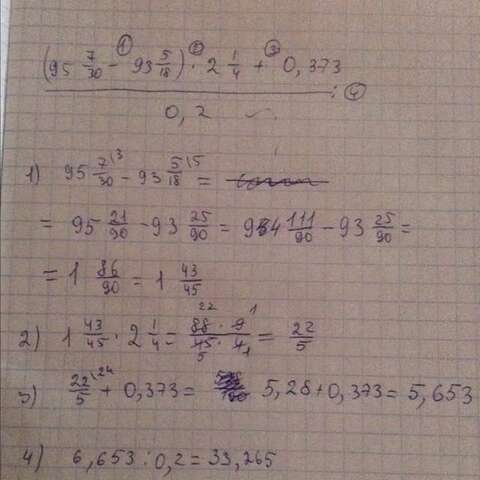 (95 7/30 - 93 5/18) · 2 1/4 + 0,373
0,2
1) 95 7/30 - 93 5/18 =
= 95 21/90 - 93 25/90 = 94 111/90 - 93 25/90 =
= 1 86/90 = 1 43/45
2) 1 43/45 · 2 1/4 = 88 · 9/45 · 4 = 22/5
3) 22/5 + 0,373 = 5,28 + 0,373 = 5,653
4) 6,653 : 0,2 = 33,265